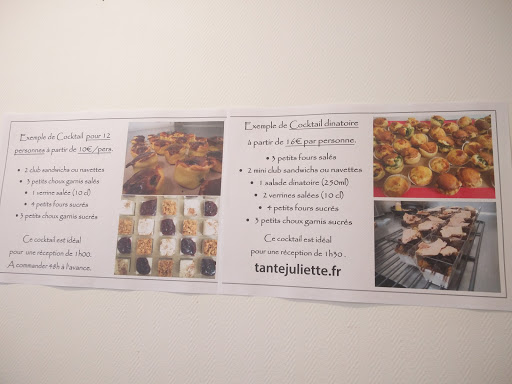 Exemple de Cocktail pour 12
personnes à partir de 10€/pers.
• 2 club sandwichs ou navettes
• 3 petits choux garnis salés
• 1 verrine salée (10 cl)
• 4 petits fours sucrés
• 3 petits choux garnis sucrés
Ce cocktail est idéal
pour une réception de 1h00.
A commander 48h à l'avance.
Exemple de Cocktail dinatoire
à partir de 16€ par personne.
• 3 petits fours salés
• 2 mini club sandwichs ou navettes
• 1 salade dinatoire (250ml)
• 2 verrines salées (10 cl)
• 4 petits fours sucrés
• 3 petits choux garnis sucrés
Ce cocktail est idéal
pour une réception de 1h30 .
tantejuliette.fr